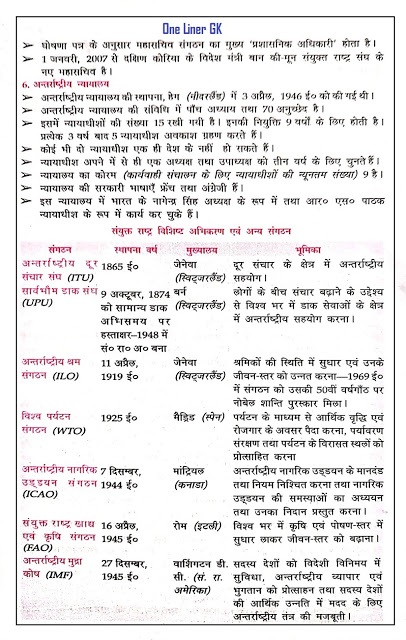 One Liner GK
➤ घोषणा पत्र के अनुसार महासचिव संगठन का मुख्य 'प्रशासनिक अधिकारी' होता है।
➤ 1 जनवरी, 2007 से दक्षिण कोरिया के विदेश मंत्री बान की-मून संयुक्त राष्ट्र संघ के
नए महासचिव है।
6. अन्तर्राष्ट्रीय न्यायालय
➤ अन्तर्राष्ट्रीय न्यायालय की स्थापना, हेग (नीदरलैंड) में 3 अप्रैल, 1946 ई० को की गई थी।
➤ अन्तर्राष्ट्रीय न्यायालय की संविधि में पाँच अध्याय तथा 70 अनुच्छेद है।
➤ इसमें न्यायाधीशों की संख्या 15 रखी गयी है। इनकी नियुक्ति 9 वर्षों के लिए होती है।
प्रत्येक 3 वर्ष बाद 5 न्यायाधीश अवकाश ग्रहण करते हैं।
➤ कोई भी दो न्यायाधीश एक ही देश के नहीं हो सकते हैं।
➤ न्यायाधीश अपने में से ही एक अध्यक्ष तथा उपाध्यक्ष को तीन वर्ष के लिए चुनते हैं।
➤ न्यायालय का कोरम (कार्यवाही संचालन के लिए न्यायाधीशों की न्यूनतम संख्या) 9 है।
➤ न्यायालय की सरकारी भाषाएँ फ्रेंच तथा अंग्रेजी हैं।
➤ इस न्यायालय में भारत के नागेन्द्र सिंह अध्यक्ष के रूप में तथा आर० एस० पाठक
न्यायाधीश के रूप में कार्य कर चुके हैं।
संयुक्त राष्ट्र विशिष्ट अभिकरण एवं अन्य संगठन
संगठन स्थापना वर्ष मुख्यालय भूमिका
अन्तर्राष्ट्रीय दूर 1865 ई० जेनेवा दूर संचार के क्षेत्र में अन्तर्राष्ट्रीय
संचार संघ (ITU) (स्विट्जरलैंड) सहयोग।
सार्वभौम डाक संघ 9 अक्टूबर, 1874 बर्न लोगों के बीच संचार बढ़ाने के उद्देश्य
(UPU) को सामान्य डाक (स्विट्जरलैंड) से विश्व भर में डाक सेवाओं के क्षेत्र
अभिसमय पर में अन्तर्राष्ट्रीय सहयोग करना।
हस्ताक्षर–1948 में
सं० रा० अ० बना
अन्तर्राष्ट्रीय श्रम 11 अप्रैल, जेनेवा श्रमिकों की स्थिति में सुधार एवं उनके
संगठन (ILO) 1919 ई० (स्विट्जरलैंड) जीवन-स्तर को उन्नत करना—1969 ई०
में संगठन को उसकी 50वीं वर्षगाँठ पर
नोबेल शान्ति पुरस्कार मिला।
विश्व पर्यटन 1925 ई० मैड्रिड (स्पेन) पर्यटन के माध्यम से आर्थिक वृद्धि एवं
संगठन (WTO) रोजगार के अवसर पैदा करना, पर्यावरण
संरक्षण तथा पर्यटन के विरासत स्थलों को
प्रोत्साहित करना
अन्तर्राष्ट्रीय नागरिक 7 दिसम्बर, मांट्रियल अन्तर्राष्ट्रीय नागरिक उड्डयन के मानदंड
उड्डयन संगठन 1944 ई० (कनाडा) तथा नियम निश्चित करना तथा नागरिक
(ICAO) उड्डयन की समस्याओं का अध्ययन
तथा उनका निदान प्रस्तुत करना।
संयुक्त राष्ट्र खाद्य 16 अप्रैल, रोम (इटली) विश्व भर में कृषि एवं पोषण-स्तर में
एवं कृषि संगठन 1945 ई० सुधार लाकर जीवन-स्तर को बढ़ाना।
(FAO)
अन्तर्राष्ट्रीय मुद्रा 27 दिसम्बर, वाशिंगटन डी. सदस्य देशों को विदेशी विनिमय में
कोष (IMF) 1945 ई० सी. (सं. रा. सुविधा, अन्तर्राष्ट्रीय व्यापार एवं
अमेरिका) भुगतान को प्रोत्साहन तथा सदस्य देशों
की आर्थिक उन्नति में मदद के लिए
अन्तर्राष्ट्रीय तंत्र की मजबूती।